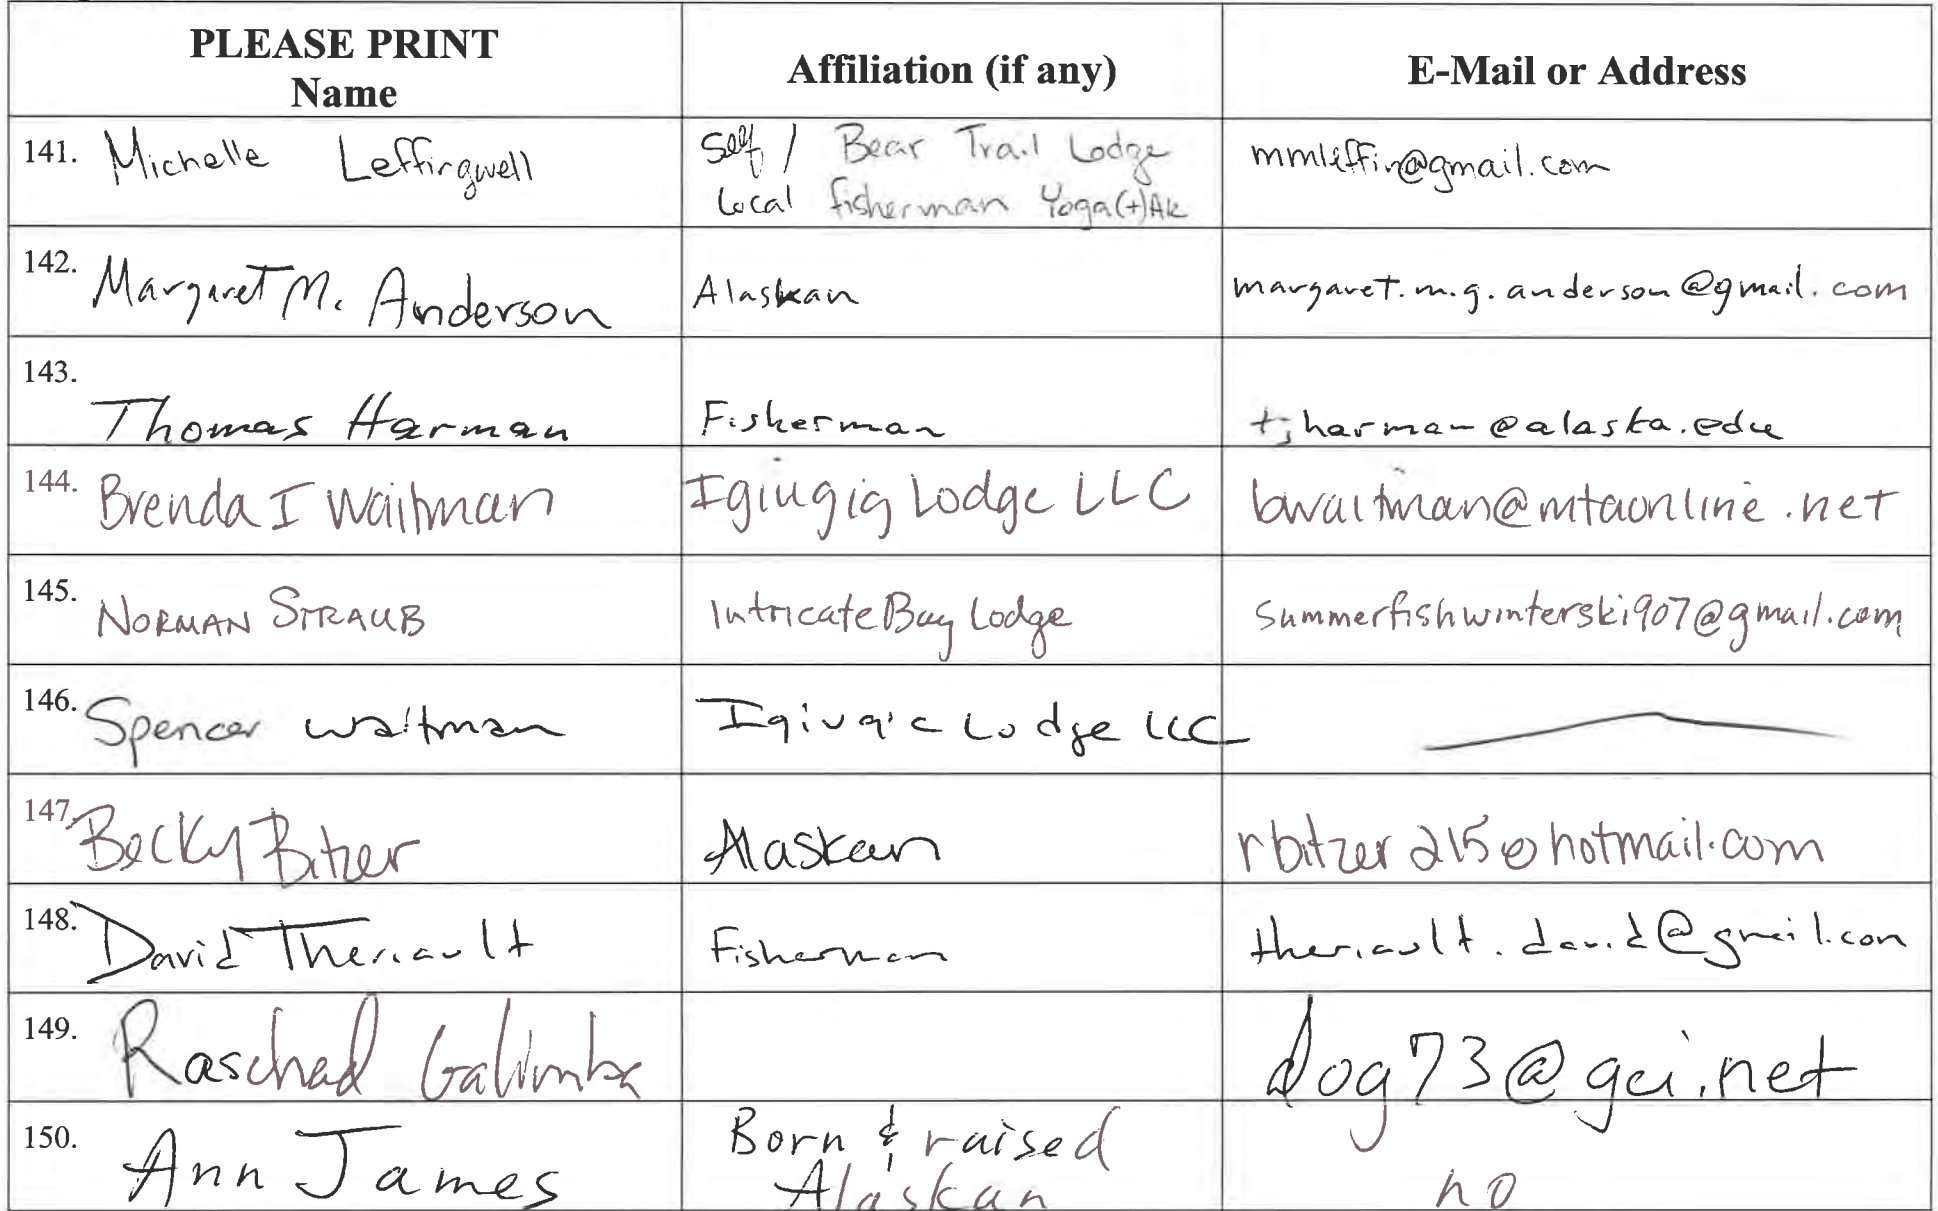 PLEASE PRINT
Name
Affiliation (if any)
E-Mail or Address
141. Michelle Leffingwell
Self / Bear Trail Lodge
Local fisherman Yoga(+)AK
mmleffin@gmail.com
142. Margaret M. Anderson
Alaskan
margaret.m.g.anderson@gmail.com
143. Thomas Harman
Fisherman
tjharman@alaska.edu
144. Brenda I Waitman
Igiugig Lodge LLC
bwaitman@mtaonline.net
145. NORMAN STRAUB
Intricate Bay Lodge
summerfishwinterski907@gmail.com
146. Spencer Waitman
Igiugig Lodge LLC
147. Becky Bitzer
Alaskan
rbitzer215@hotmail.com
148. David Theriault
Fisherman
theriault.david@gmail.com
149. Raschad
dog73@gci.net
150. Ann James
Born & raised
Alaskan
no